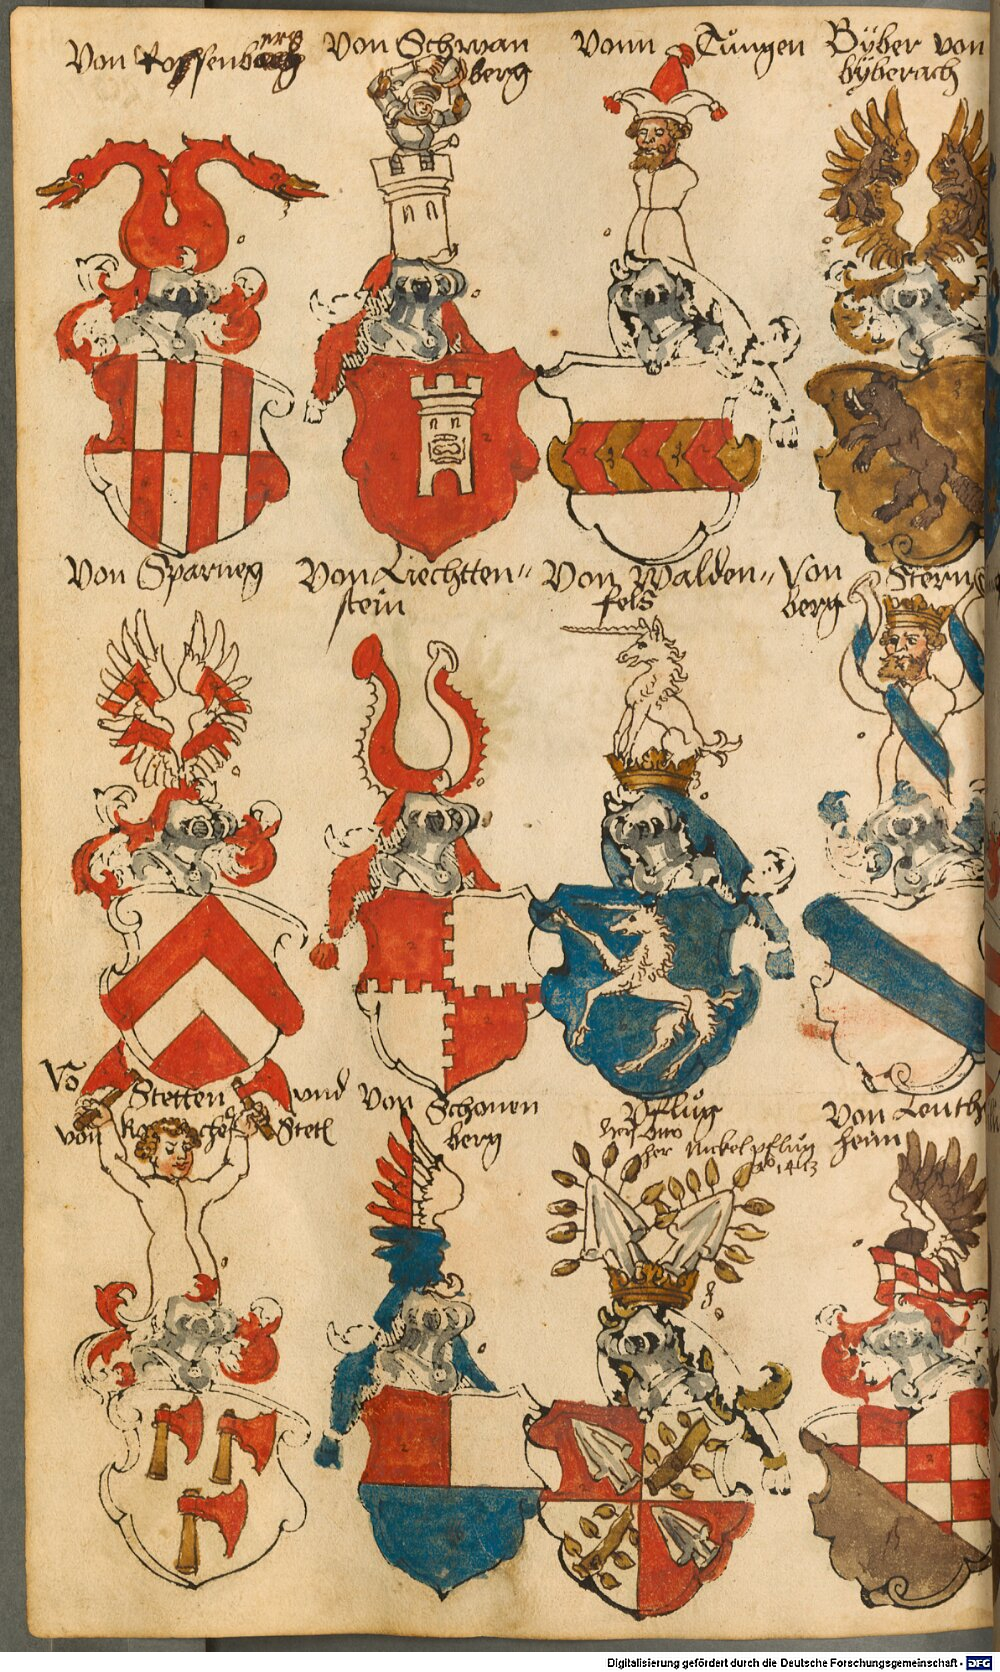 Von Rossenberg
Von Schwan
berg
Vonn Tüngen
Byber von
byberach
Von Sparneg
Von Liechtten"
stein
Von Walden"
fels
Von Stern
berg
Vō Stetten und
von Kochestetl
Von Schonen
berg
Pflug
her Nickel pflug
ao 1413
Von Leuth
heim
Digitalisierung gefördert durch die Deutsche Forschungsgemeinschaft - DFG